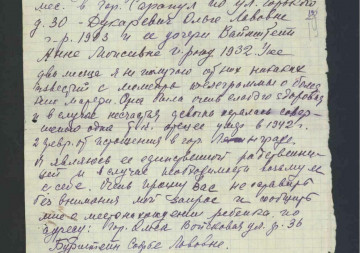 мес. в гор. Сарапул по ул. Горького
д. 30 - Дукаревич Ольге Львовне
г-р. 1903 и ее дочери Вайнтрейб
Анне Моисеевне г-рожд 1932. Уже
два месяца я не получаю от них никаких
известий с момента телеграммы о болез-
ни матери. Она была очень слабого здоровья
и в случае несчастья девочка осталась совер-
шенно одна т.к. отец умер в 1942 г.
в гор. Ленинграде.
Я являюсь ее единственной родственни-
цей и в случае необходимости возьму ее
к себе. Очень прошу Вас не оставить
без внимания мой запрос и сообщить
мне о местонахождении ребенка по
адресу: Гор. Омск Войсковая ул. д. 36
Бурштейн Софье Львовне.